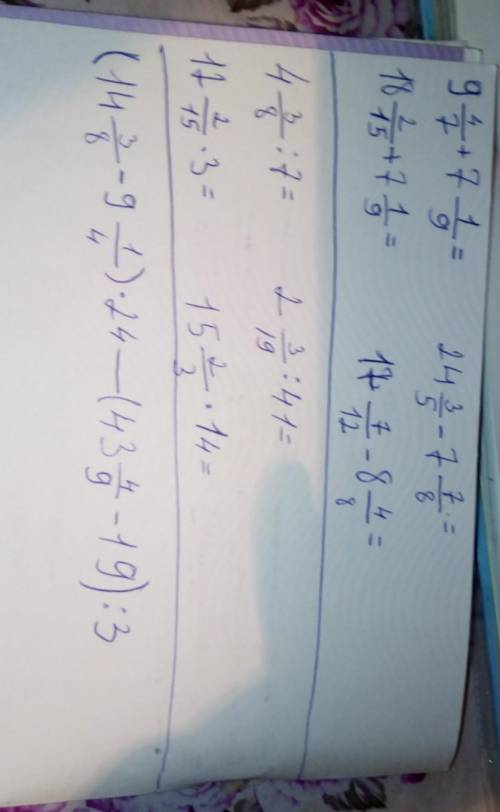 9 4/7 + 7 1/9 = 24 3/5 - 7 7/8 =
18 2/15 + 7 1/9 = 17 7/12 - 8 4/8 =
4 3/8 : 7 = 2 3/19 : 41 =
17 2/15 · 3 = 15 2/3 · 14 =
(14 3/8 - 9 1/4) · 24 — (43 4/9 - 19) : 3